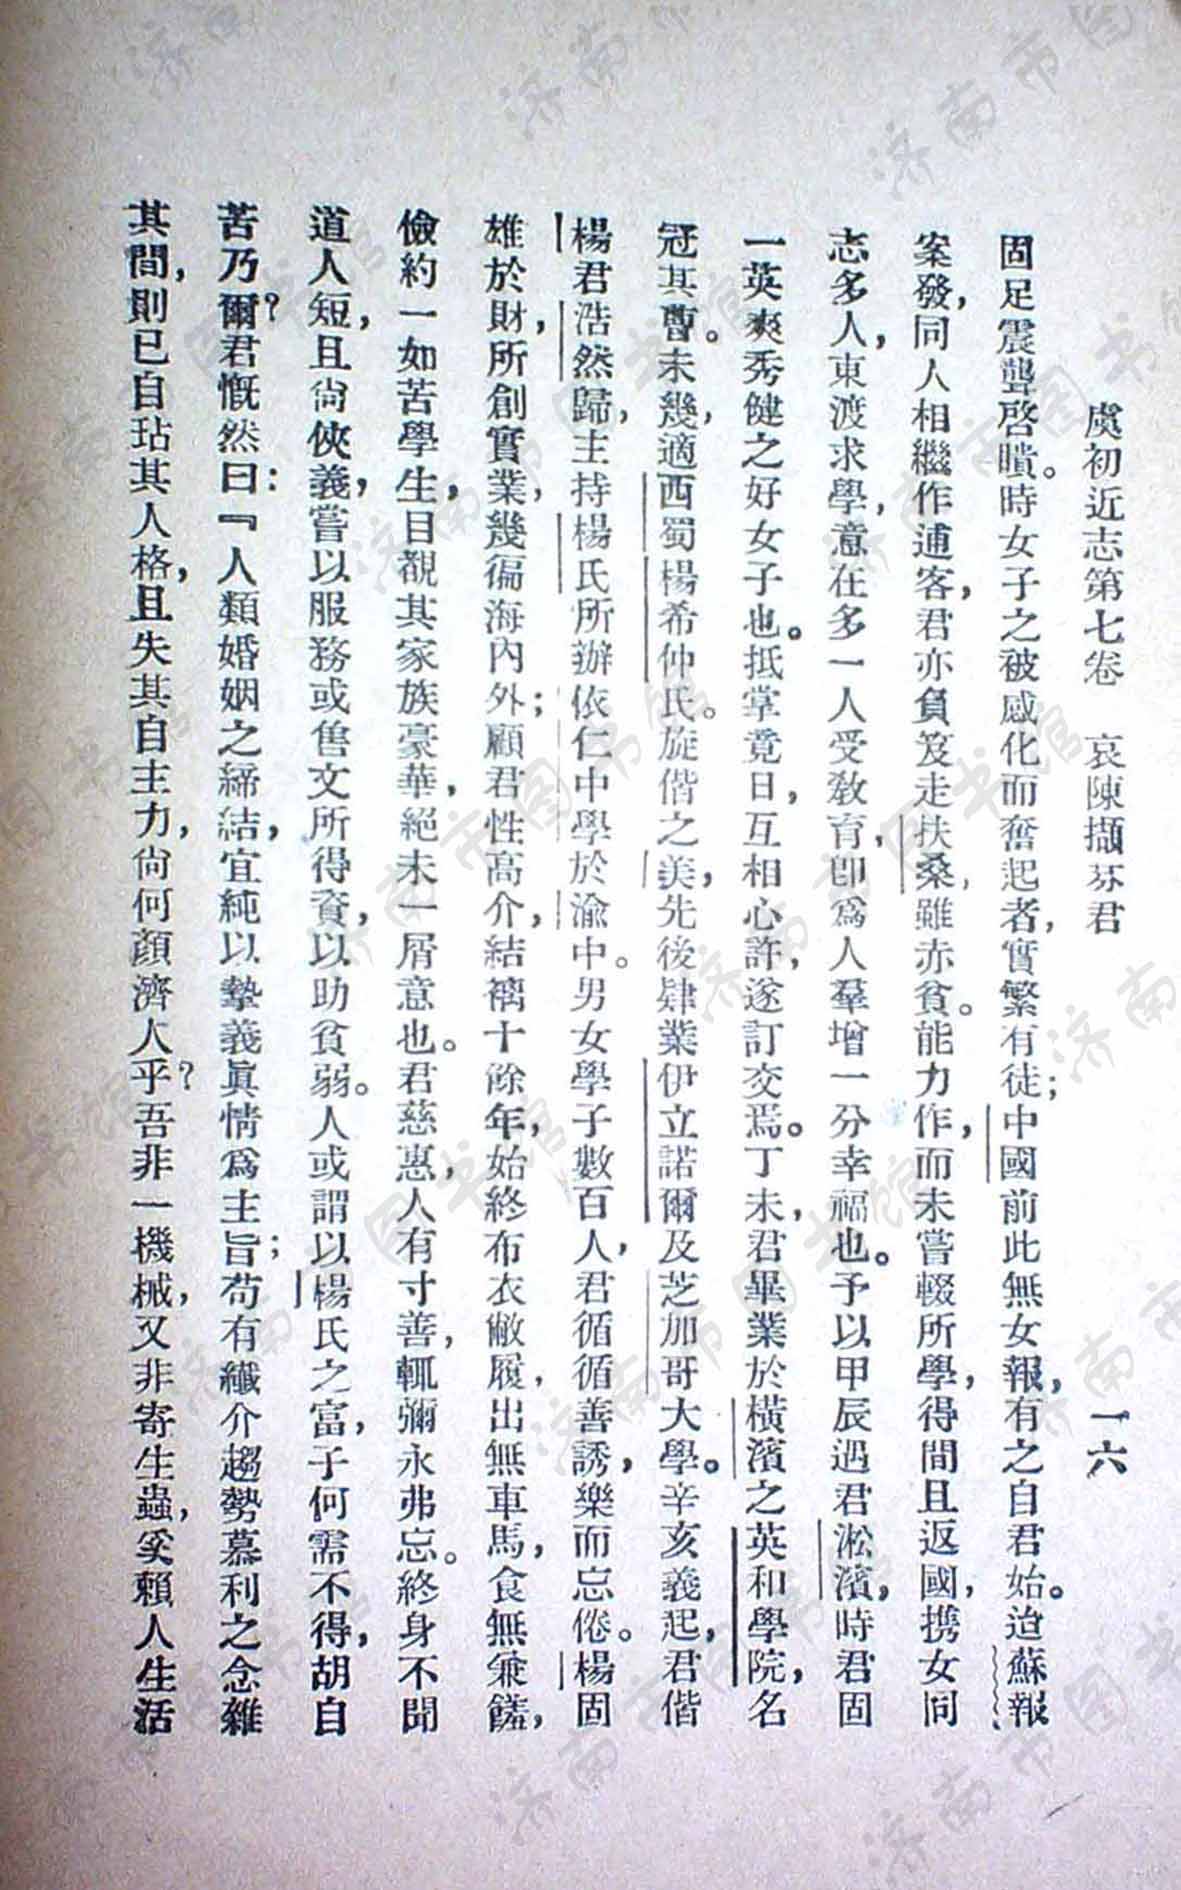 虞初近志第七卷　哀陳擷芬君　一六
固足震聾啓瞶。時女子之被感化而奮起者，實繁有徒；中國前此無女報，有之自君始。迨蘇報
案發，同人相繼作逋客，君亦負笈走扶桑，雖赤貧。能力作，而未嘗輟所學，得間且返國，携女同
志多人，東渡求學，意在多一人受教育，卽爲人羣增一分幸福也。予以甲辰遇君淞濱，時君固
一英爽秀健之好女子也。抵掌竟日，互相心許，遂訂交焉。丁未，君畢業於橫濱之英和學院，名
冠其曹。未幾，適西蜀楊希仲氏。旋偕之美，先後肄業伊立諾爾及芝加哥大學。辛亥義起，君偕
楊君浩然歸，主持楊氏所辦依仁中學於渝中。男女學子數百人，君循循善誘，樂而忘倦。楊固
雄於財，所創實業，幾徧海內外；顧君性高介，結褵十餘年，始終布衣敝履，出無車馬，食無兼饈，
儉約一如苦學生，目覩其家族豪華，絕未一屑意也。君慈惠，人有寸善，輒彌永弗忘。終身不聞
道人短，且尙俠義，嘗以服務或售文所得資，以助貧弱。人或謂以楊氏之富，子何需不得，胡自
苦乃爾？君慨然曰：『人類婚姻之締結，宜純以摯義眞情爲主旨；苟有纖介趨勢慕利之念雜
其間，則已自玷其人格，且失其自主力，尙何顏濟人乎？吾非一機械，又非寄生蟲，奚賴人生活